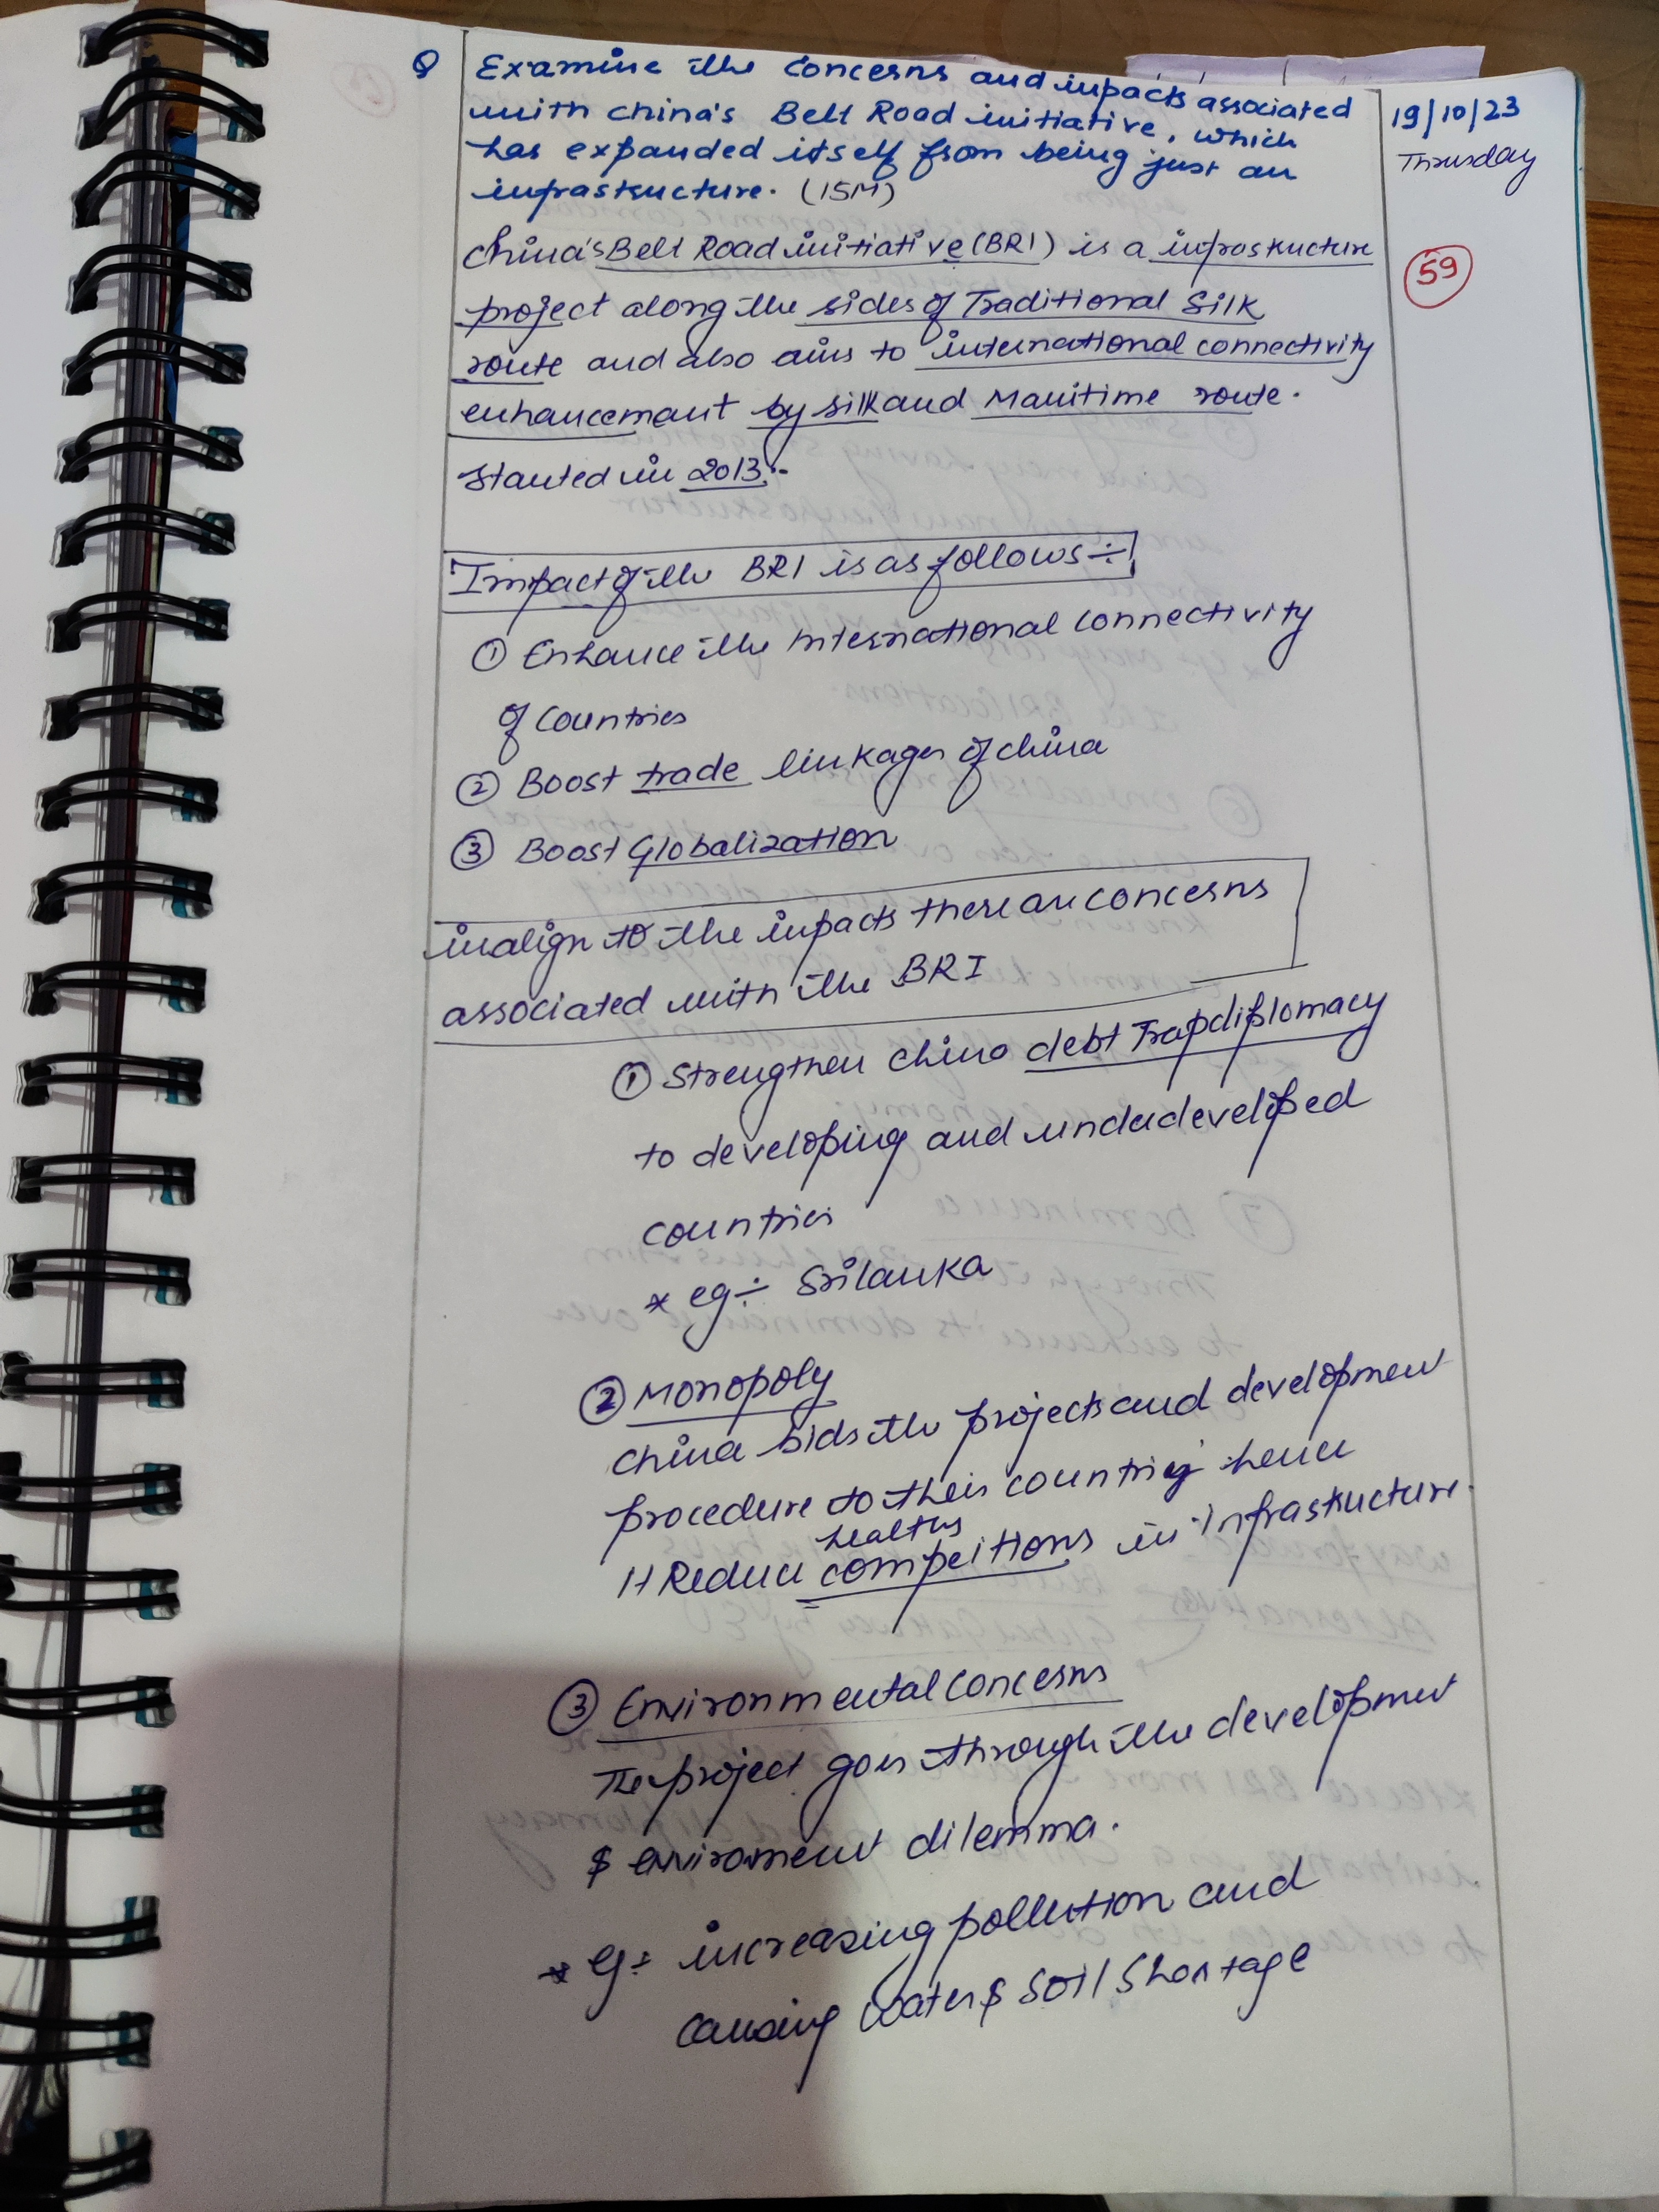 Q Examine the concerns and impacts associated
with china's Belt Road initiative, which
has expanded itself from being just an
infrastructure. (15M)
19/10/23
Thursday
59
China's Belt Road initiative (BRI) is a infrastructure
project along the sides of Traditional Silk
route and also aims to international connectivity
enhancement by silk and Maritime route.
Started in 2013.
Impact of the BRI is as follows ÷
① Enhance the International connectivity
of countries
② Boost trade linkages of china
③ Boost Globalization
inalign to the impacts there are concerns
associated with the BRI
① Strengthen china debt Trap diplomacy
to developing and underdeveloped
countries
* eg ÷ Srilanka
② Monopoly
china bids the projects and development
procedure to their country hence
It Reduce healthy competitions in infrastructure.
③ Environmental concerns
The project goes through the development
$ enviroment dilemma.
* eg ÷ increasing pollution and
causing water $ soil shortage